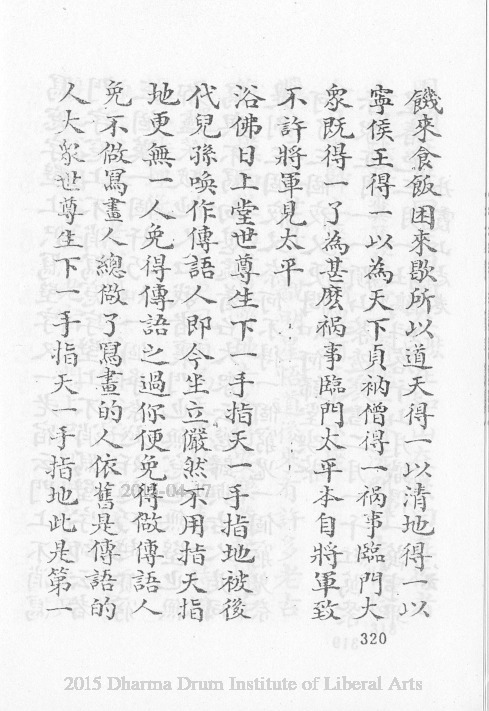 饑來食飯困來歇所以道天得一以清地得一以
寧侯王得一以為天下貞衲僧得一祸事臨門大
衆既得一了為甚麽祸事臨門太平本自將軍致
不許將軍見太平
浴佛日上堂世尊生下一手指天一手指地被後
代兒孫喚作傳語人即今坐立儼然不用指天指
地更無一人免得傳語之過你便免得做傳語人
免不做冩畫人總做了冩畫的人依舊是傳語的
人大衆世尊生下一手指天一手指地此是第一
320
2015 Dharma Drum Institute of Liberal Arts